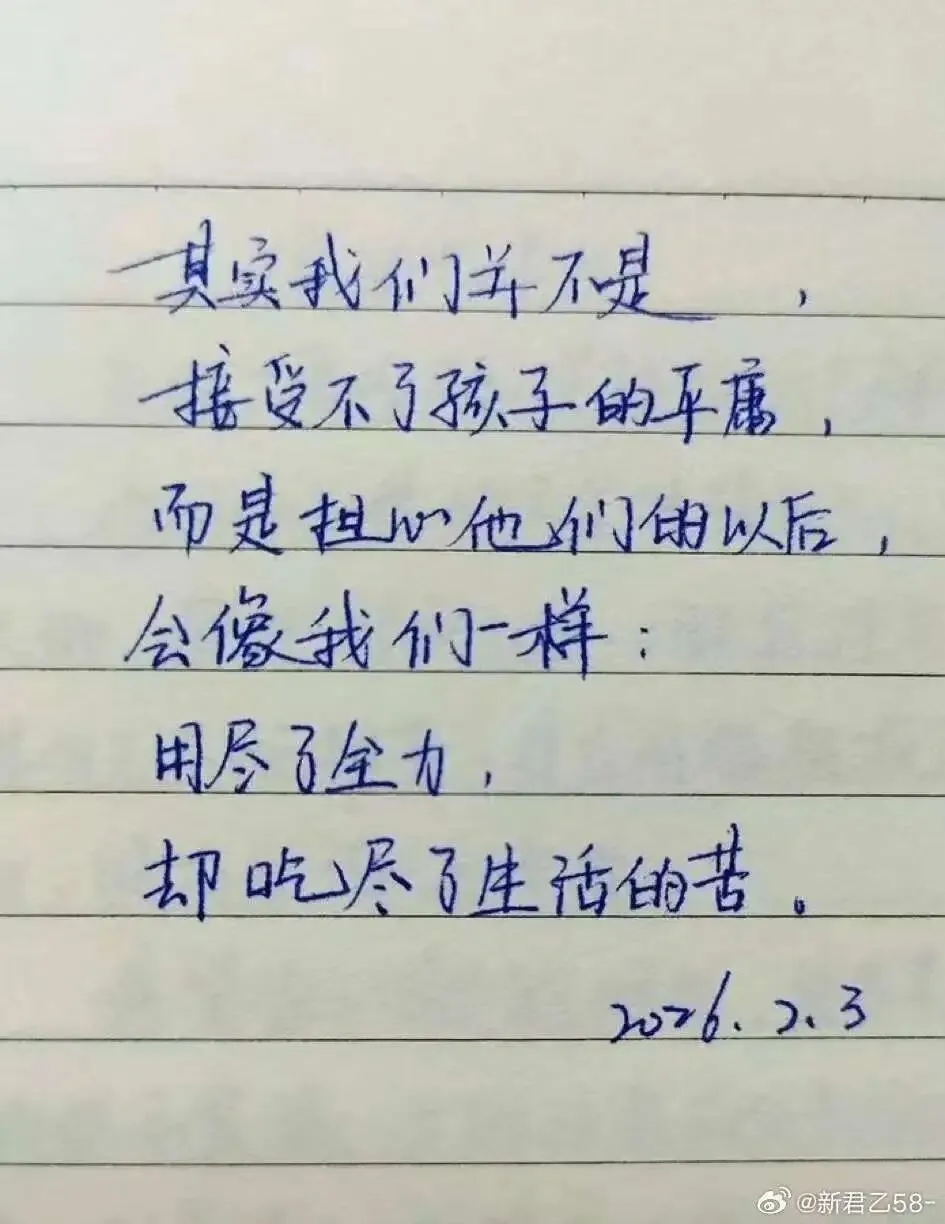 其实我们并不是，
接受不了孩子的平庸，
而是担心他们的以后，
会像我们一样：
用尽了全力，
却吃尽了生活的苦。
2026.2.3
@新君乙58-